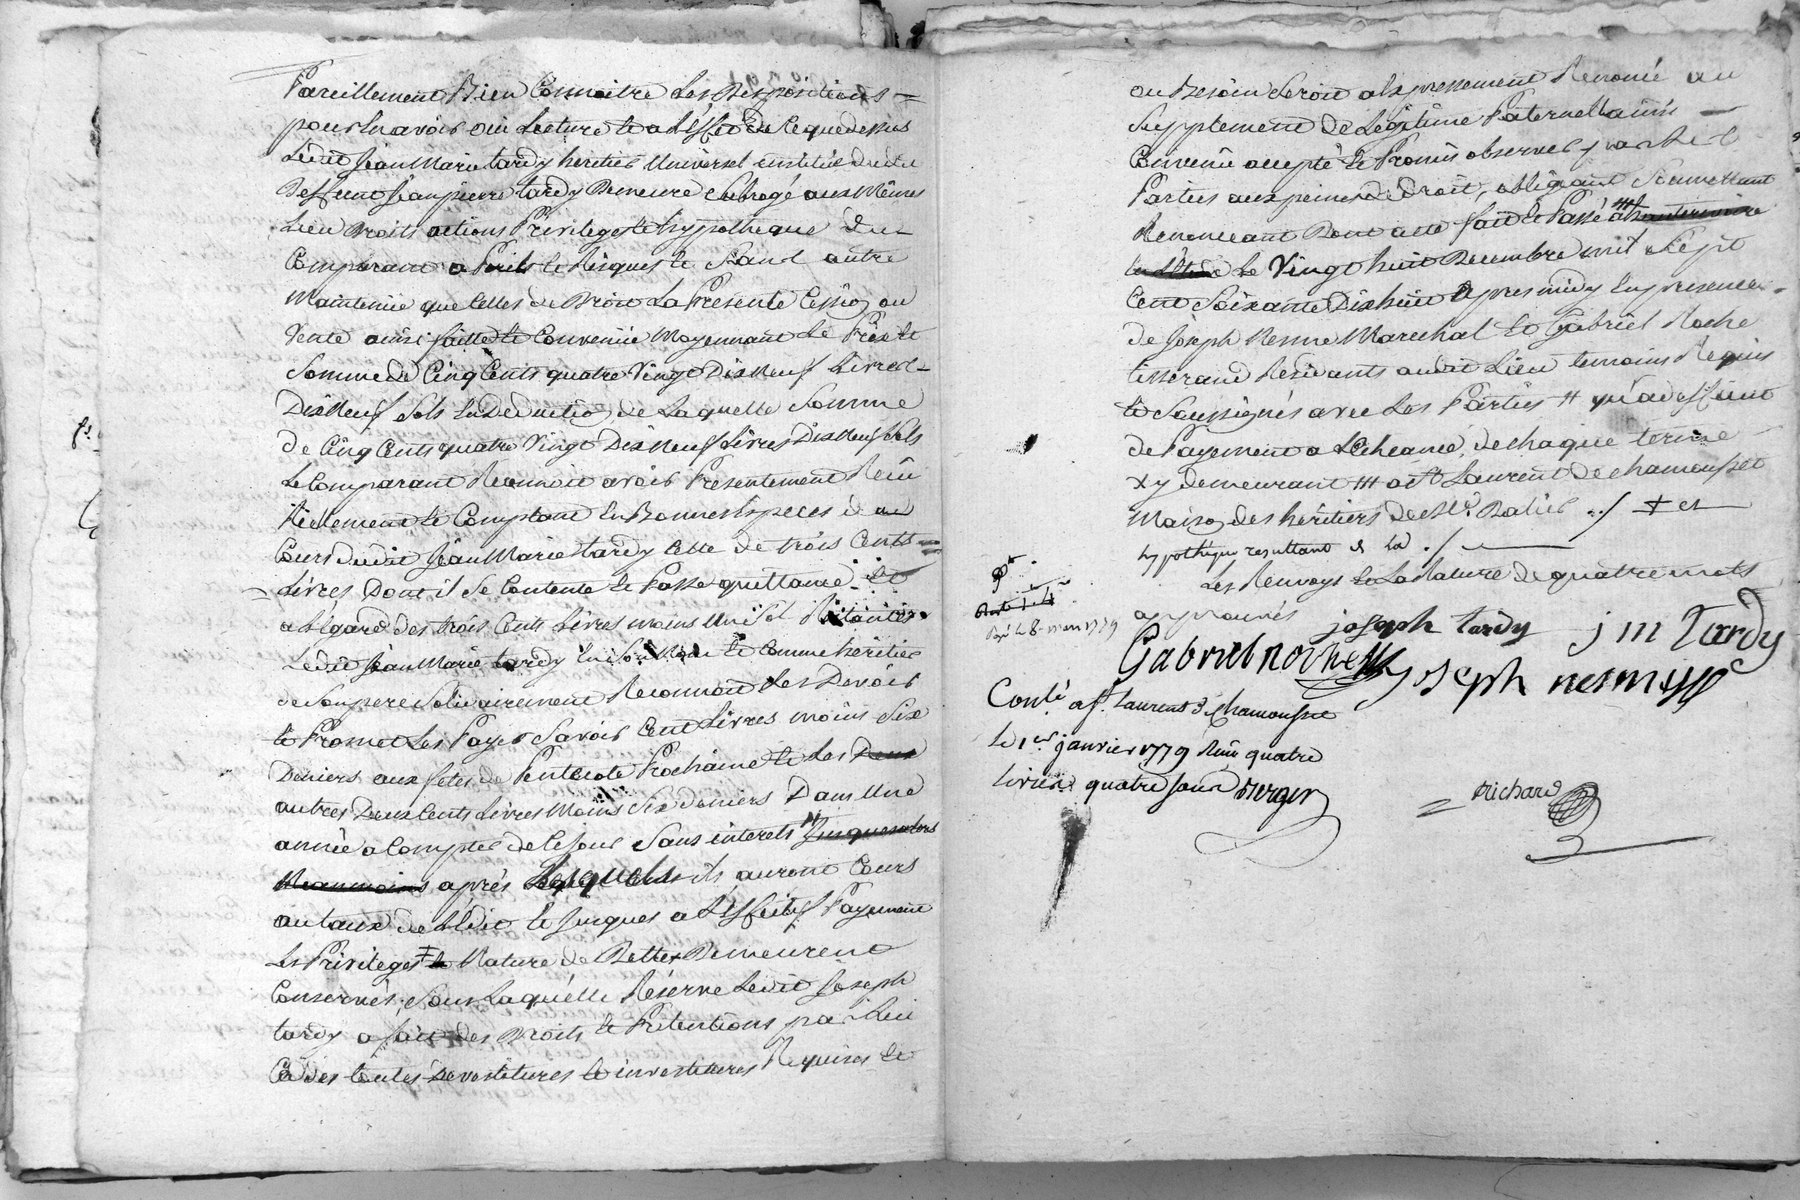 Pareillement Bien Connoitre Les Dispositions
pour En avoir oüi Lecture et a L'Effet de Ce que dessus
Ledit Jean Marie tardy heritier Universel institué dudit
Deffunt Jean pierre tardy Demeure Subrogé aux Mêmes
Lieu Droits actions Privileges et hypotheque du
Comparant a Perils et Risques et Sand autre
Maintenüe que Celles de Droit La Presente Cession ou
Vente ainsi faitte et Convenüe Moyennant Le Prix et
Somme de Cinq Cents quatre Vingt Dix Neuf Livres
Dix Neuf Sols En Deduction de Laquelle Somme
de Cinq Cents quatre Vingt Dix Neuf Livres Dix Neuf Sols
Le Comparant Reconnoit avoir Presentement Reçû
Réelement et Comptant En Bonnes Especes de
Cours dudit Jean Marie tardy Celle de trois Cents
Livres Dont il Se Contente et Passe quittance Et
a L'Egard des trois Cents Livres moins Un Sol Restantes
Ledit Jean Marie tardy En Son Nom et Comme heritier
de Son pere Solidairement Reconnoit Les Devoir
et Promet Les Payer Savoir Cent Livres moins Six
Deniers aux fetes de Pentecote Prochaine et Les Deux
autres Deux Cents Livres Moins Six deniers Dans Une
année a Compter de Ce Jour Sans interets # Jusques alors
Neanmoins après Lesquels ils auront Cours
au taux de L'Edit et Jusques a L'Effectif Payement
Les Privileges ‡ et Nature de Dette x Demeurent
Conservés, Sous Laquélle Réserve Ledit Joseph
tardy a fait des Droits et Pretentions par Lui
Cedés toutes Devestitures et investitures Requises et
ou Besoin Seroit a Expressement Renoncé au
Supplement de Légitime Paternelle ainsi
Convenû accepté et Promis observer par Les
Parties aux peines de Droit, obligeant Soumettant
Renonceant Dont acte fait et Passé ###
Le Vingt huit Decembre mil Sept
Cent Soixante Dix huit Apres midy En presence
de Joseph Nesme Marechal Et Gabriel Roche
tisserand Residants audit Lieu temoins Requis
et Soussignés avec Les Parties # qu'a deffaut
de Payement a L'Echeance, de chaque terme
x y demeurant ### a St Laurent de chamousset
Maison des héritiers de Me. Ratier ../ ‡ et
hypothéque resultant de La ./
Les Renvoys Et La Rature de quatre mots
approuvés joseph tardy j m Tardy
Gabriel roche joseph nesme
Conlé a St Laurent d Chamousset
Le 1er janvier 1779 Reçu quatre
livres quatre sous Berger
Richard